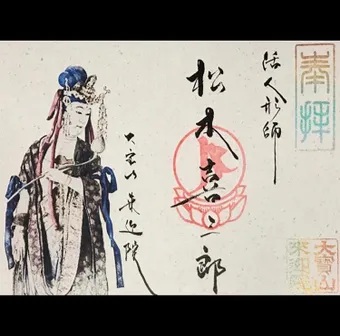 奉拝
活人形師
松本喜三郎
大宝山 来迎院
大寶山
来迎院